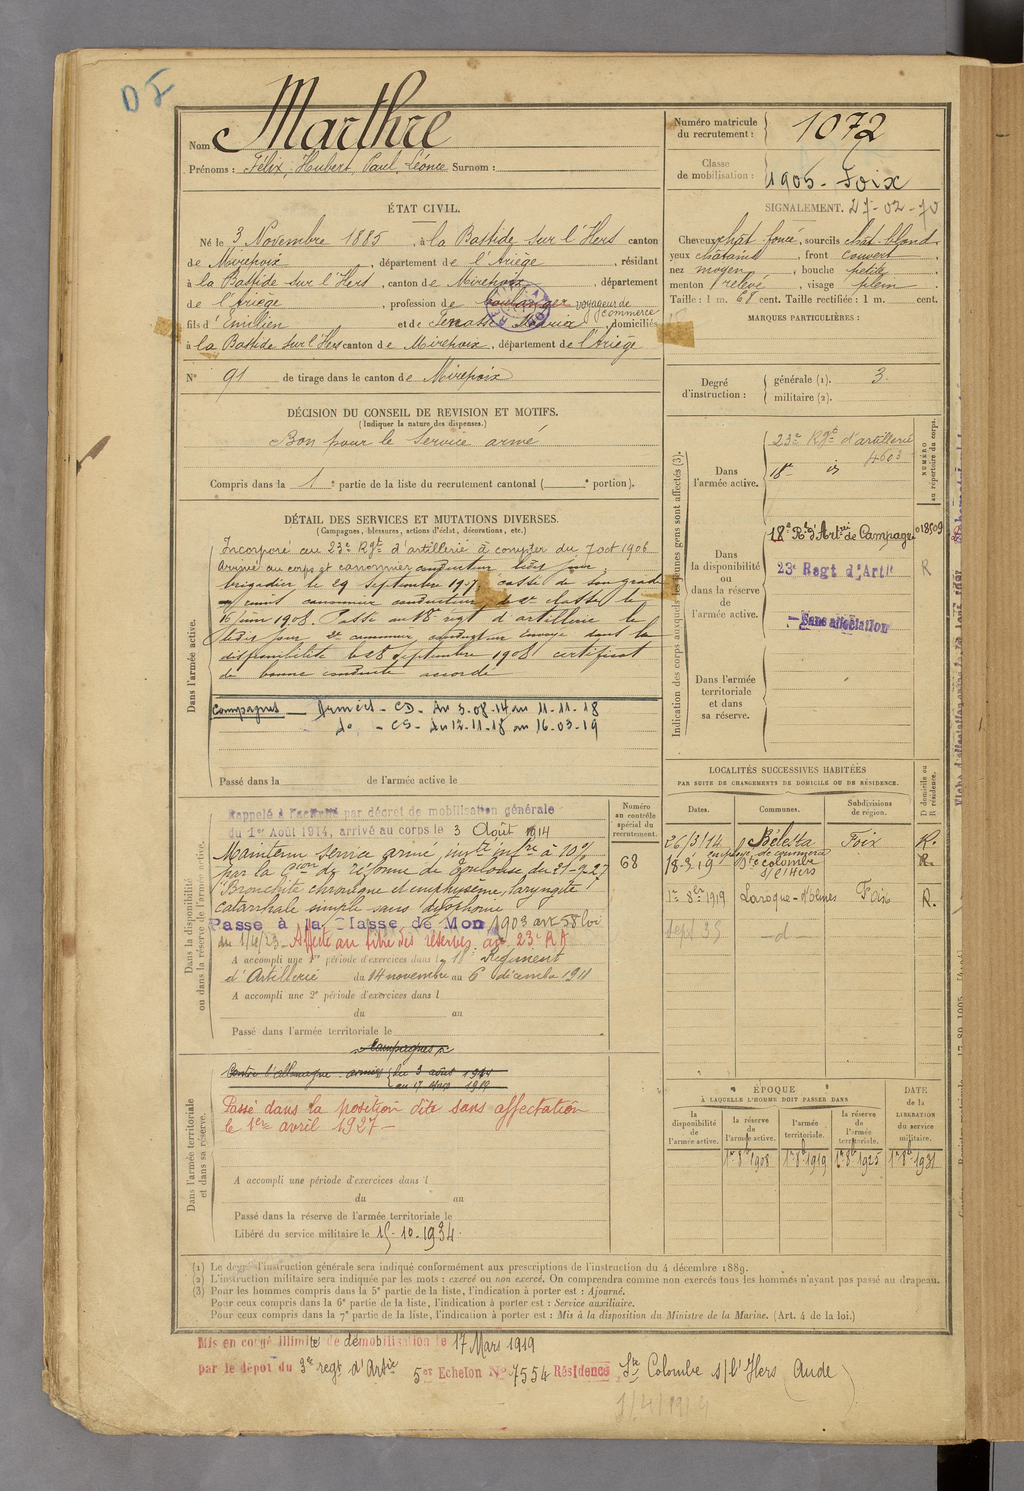 DF
Nom Marthre
Prénoms : Félix, Hubert, Paul, Léonce Surnom :
Numéro matricule du recrutement : 1072
Classe de mobilisation : 1905 - Foix
ÉTAT CIVIL.
Né le 3 Novembre 1885, à la Bastide sur l'Hers canton
de Mirepoix, département de l'Ariège, résidant
à la Bastide sur l'Hers, canton de Mirepoix, département
de l'Ariège, profession de boulanger voyageur de commerce
fils d'Emilien et de Maria, domiciliés
à la Bastide sur l'Hers canton de Mirepoix, département de l'Ariège
N° 91 de tirage dans le canton de Mirepoix
SIGNALEMENT. 27-02-70
Cheveux chât foncé, sourcils chât-blond
yeux châtains, front couvert
nez moyen, bouche petite
menton relevé, visage plein
Taille : 1 m. 68 cent. Taille rectifiée : 1 m. cent.
MARQUES PARTICULIÈRES :
Degré d'instruction : générale (1). 3
militaire (2).
DÉCISION DU CONSEIL DE REVISION ET MOTIFS.
(Indiquer la nature des dispenses.)
Bon pour le Service armé
Compris dans la 1e partie de la liste du recrutement cantonal ( e portion).
DÉTAIL DES SERVICES ET MUTATIONS DIVERSES.
(Campagnes, blessures, actions d'éclat, décorations, etc.)
Dans l'armée active.
Incorporé au 23e Rgt d'artillerie à compter du 7 oct 1906
Arrivé au corps et canonnier conducteur ledit jour,
brigadier le 29 septembre 1907, cassé de son grade
et remis canonnier conducteur de 2e classe le
16 juin 1908. Passé au 18e régt d'artillerie le
ledit jour 2e canonnier conducteur Envoyé dans la
disponibilité le 28 septembre 1908 certificat
de bonne conduite accordé
Campagnes - Armées - CD - du 3-08-14 au 11-11-18
do - CS - du 12-11-18 au 16-03-19
Passé dans la de l'armée active le
Indication des corps auxquels les jeunes gens sont affectés (3).
NUMÉRO au répertoire du corps.
Dans l'armée active.
23e Rgt d'artillerie
4603
18e id
Dans la disponibilité ou dans la réserve de l'armée active.
18e Rt d'Artie de Campagne 018509
23e Regt d'Artie R
Sans affectation
Dans l'armée territoriale et dans sa réserve.
Dans la disponibilité ou dans la réserve de l'armée active.
Rappelé à l'activité par décret de mobilisation générale
du 1er Août 1914, arrivé au corps le 3 Août 1914
Maintenu service armé, invté infre à 10%
par la Con de réforme de Toulouse du 21-9-27
"Bronchite chronique et emphysème, laryngite
catarrhale simple sans dysphonie
Passé à la Classe de Mon 1903 art 58 loi
du 1/4/23 - Affecté au titre des réserves au 23e RA
A accompli une 1re période d'exercices dans l 18e Régiment
d'Artillerie du 14 novembre au 6 décembre 1911
A accompli une 2e période d'exercices dans l
du au
Passé dans l'armée territoriale le
Numéro au contrôle spécial du recrutement.
68
LOCALITÉS SUCCESSIVES HABITÉES
PAR SUITE DE CHANGEMENTS DE DOMICILE OU DE RÉSIDENCE.
Dates. Communes. Subdivisions de région. D domicile ou R résidence.
26/3/14 Bélesta Foix R.
employé de commerce
18-3-19 Ste Colombe s/l'Hers R.
1er 8bre 1919 Laroque-d'Olmes Foix R.
Sept 35 - d -
Dans l'armée territoriale et dans sa réserve.
Campagnes
Contre l'Allemagne : armées du 3 août 1914
au 17 mars 1919
Passé dans la position dite sans affectation
le 1er avril 1927 -
A accompli une période d'exercices dans l
du au
Passé dans la réserve de l'armée territoriale le
Libéré du service militaire le 15-10-1934.
ÉPOQUE
À LAQUELLE L'HOMME DOIT PASSER DANS
DATE de la LIBÉRATION du service militaire.
la disponibilité de l'armée active. la réserve de l'armée active. l'armée territoriale. la réserve de l'armée territoriale.
1er 8bre 1908 1er 8bre 1919 1er 8bre 1925 1er 8bre 1931
(1) Le degré d'instruction générale sera indiqué conformément aux prescriptions de l'instruction du 4 décembre 1889.
(2) L'instruction militaire sera indiquée par les mots : exercé ou non exercé. On comprendra comme non exercés tous les hommes n'ayant pas passé au drapeau.
(3) Pour les hommes compris dans la 5e partie de la liste, l'indication à porter est : Ajourné.
Pour ceux compris dans la 6e partie de la liste, l'indication à porter est : Service auxiliaire.
Pour ceux compris dans la 7e partie de la liste, l'indication à porter est : Mis à la disposition du Ministre de la Marine. (Art. 4 de la loi.)
Mis en congé illimité de démobilisation le 17 Mars 1919
par le dépôt du 3e regt d'Artie 5er Echelon No 7554 Résidence Ste Colombe s/l'Hers (Aude)